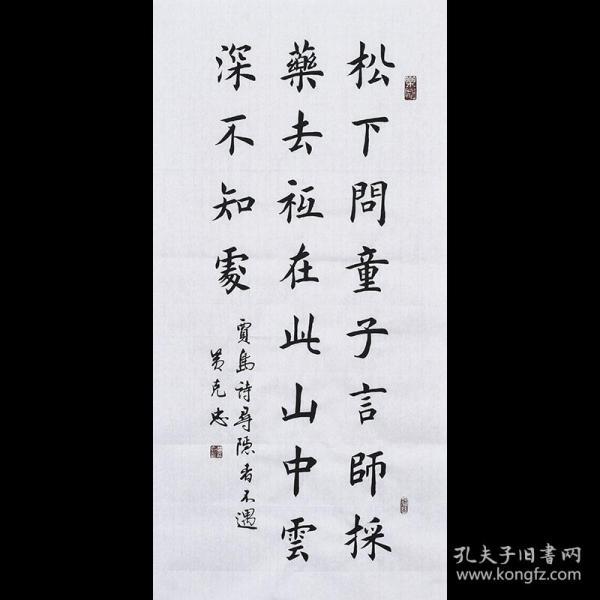 松下問童子言師採
藥去祇在此山中雲
深不知處
賈島詩尋隱者不遇
黃克忠
孔夫子旧书网
www.kongfz.com